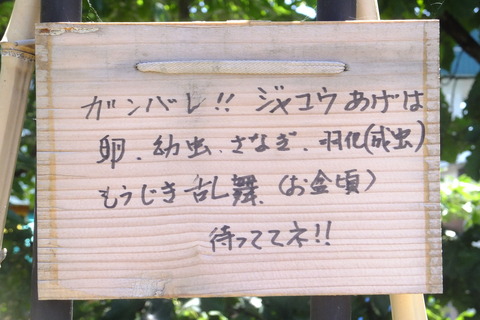 ガンバレ!! ジャコウあげは
卵、幼虫、さなぎ、羽化(成虫)
もうじき乱舞、(お盆頃)
待っててネ!!